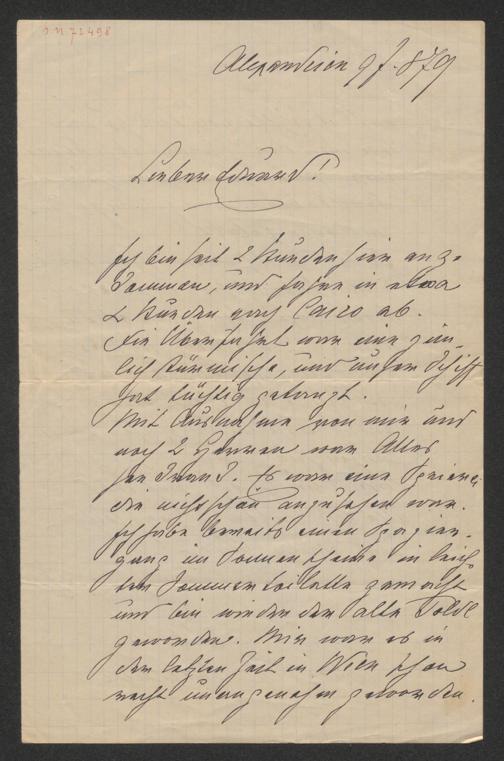 I N 72498
Alexandrien 9/7. 879
Lieber Eduard!
Ich bin seit 2 Stunden hier ange-
kommen, und fahre in etwa
2 Stunden nach Cairo ab.
Die Überfahrt war eine ziem-
lich stürmische, und unser Schiff
hat tüchtig getanzt.
Mit Ausnahme von mir und
noch 2 Herren war Alles
seekrank. Es war eine Speierei
die nicht schön anzusehen war.
Ich habe bereits einen Spazier-
gang im Sonnenscheine in leich-
ter Sommertoilette gemacht
und bin wieder der alte
geworden. Mir war es in
der letzten Zeit in Wien schon
recht unangenehm geworden.